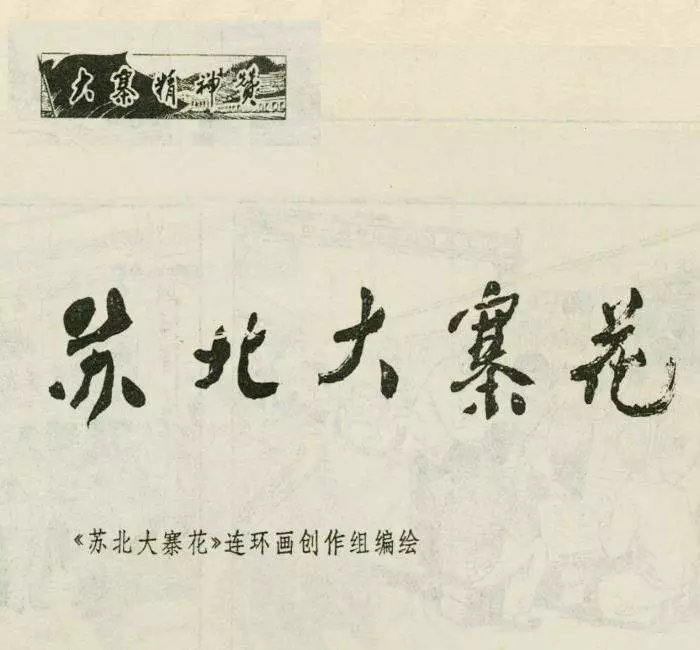 大寨精神赞
苏北大寨花
《苏北大寨花》连环画创作组编绘